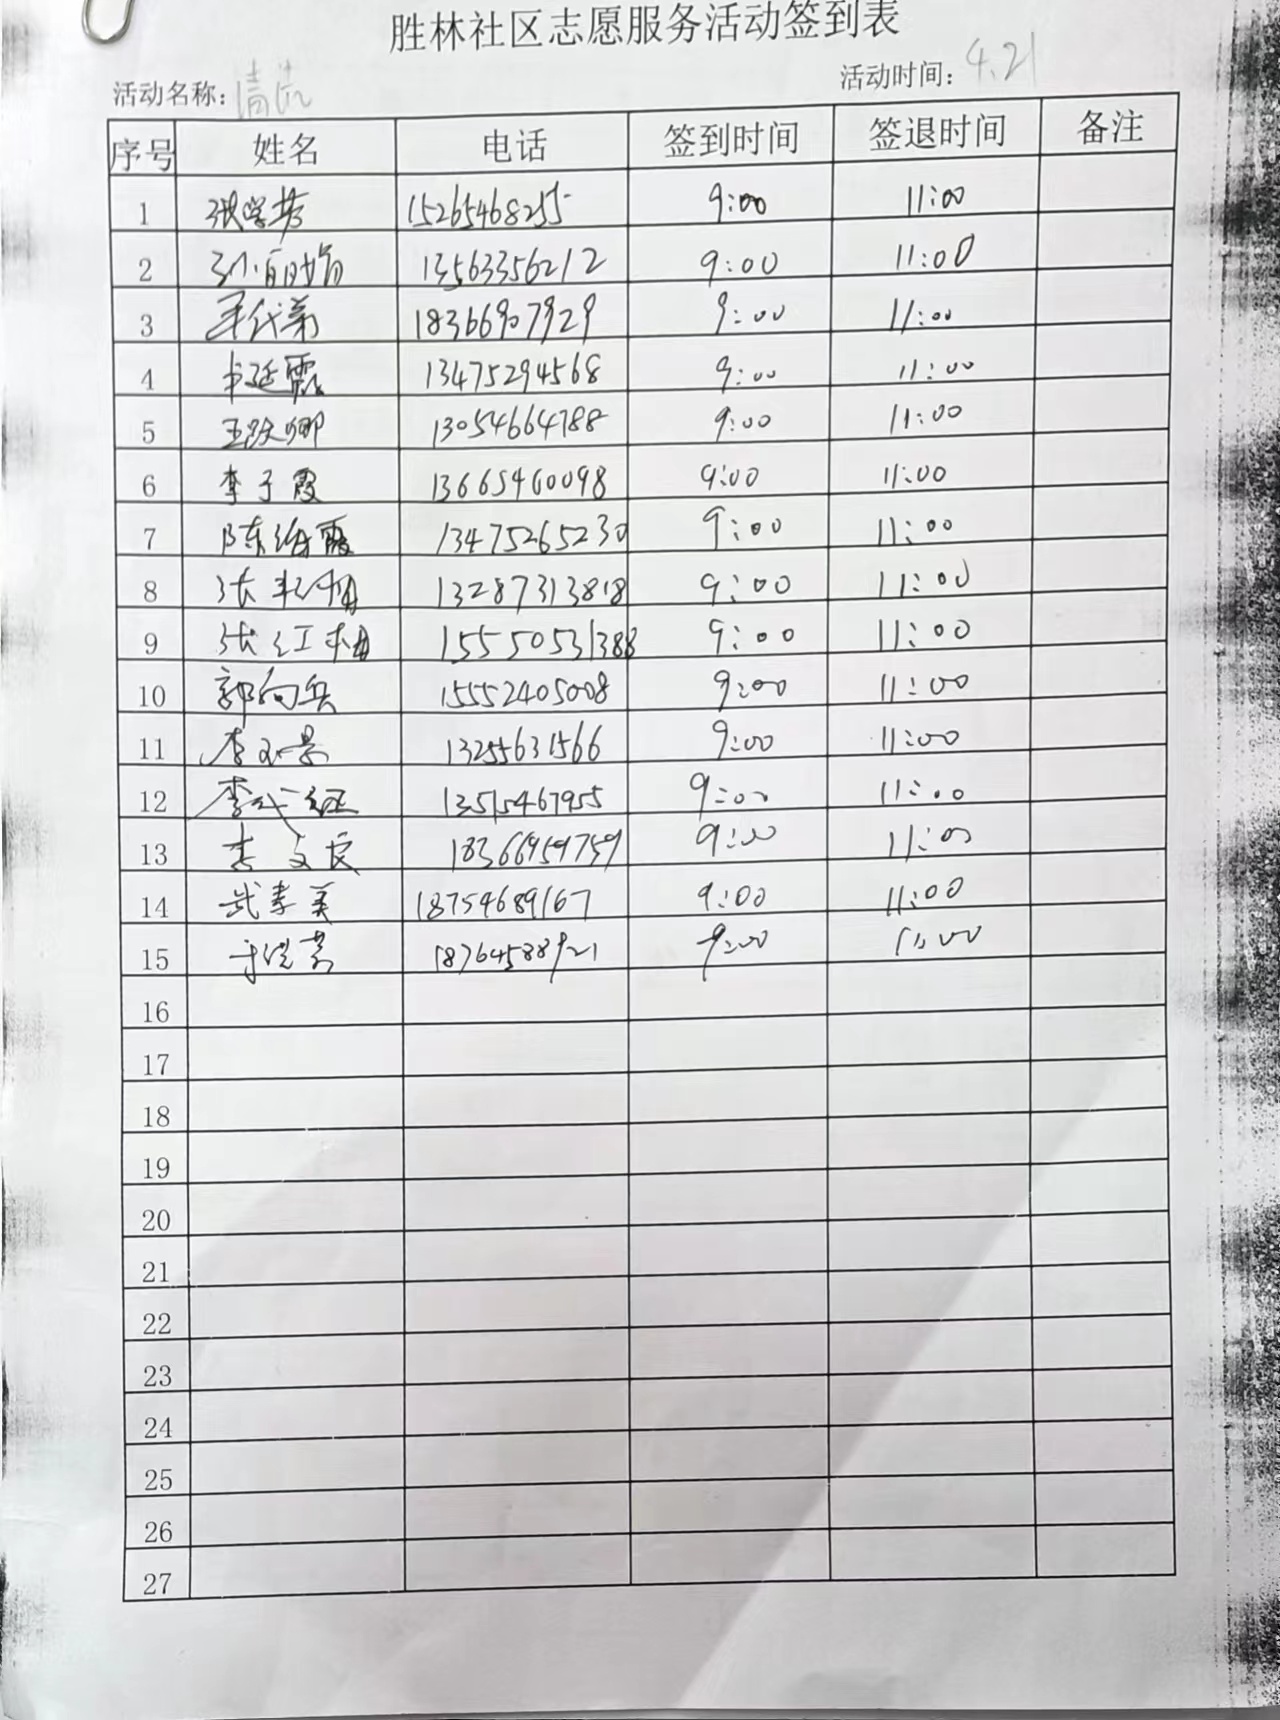 胜林社区志愿服务活动签到表
活动名称: 清洗 活动时间: 4.21
序号 姓名 电话 签到时间 签退时间 备注
1 张学芳 15265468255 9:00 11:00
2 孙丽娟 13563356212 9:00 11:00
3 18366907929 9:00 11:00
4 13475294568 9:00 11:00
5 王跃卿 13054664788 9:00 11:00
6 李子霞 13665460098 9:00 11:00
7 陈海霞 13475265230 9:00 11:00
8 张 13287313818 9:00 11:00
9 张红梅 15550531388 9:00 11:00
10 郭向兵 15552405008 9:00 11:00
11 李 13255631566 9:00 11:00
12 李代征 13515467955 9:00 11:00
13 李文良 18366959759 9:00 11:00
14 武孝美 18754689167 9:00 11:00
15 18764588921 9:00 11:00
16
17
18
19
20
21
22
23
24
25
26
27